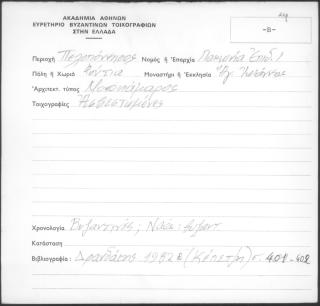 ΑΚΑΔΗΜΙΑ ΑΘΗΝΩΝ
ΕΥΡΕΤΗΡΙΟ ΒΥΖΑΝΤΙΝΩΝ ΤΟΙΧΟΓΡΑΦΙΩΝ
ΣΤΗΝ ΕΛΛΑΔΑ
-Β-
Περιοχή Πελοπόννησος Νομός ή Επαρχία Λακωνία Επιδ.
Πόλη ή Χωριό Μοναστήρι ή Εκκλησία Άγ.
Αρχιτεκτ. τύπος Μονοκάμαρος
Τοιχογραφίες Ασβεστωμένες
Χρονολογία Βυζαντινός;
Κατάσταση
Βιβλιογραφία Δρανδάκης 1982 σ. 401-402